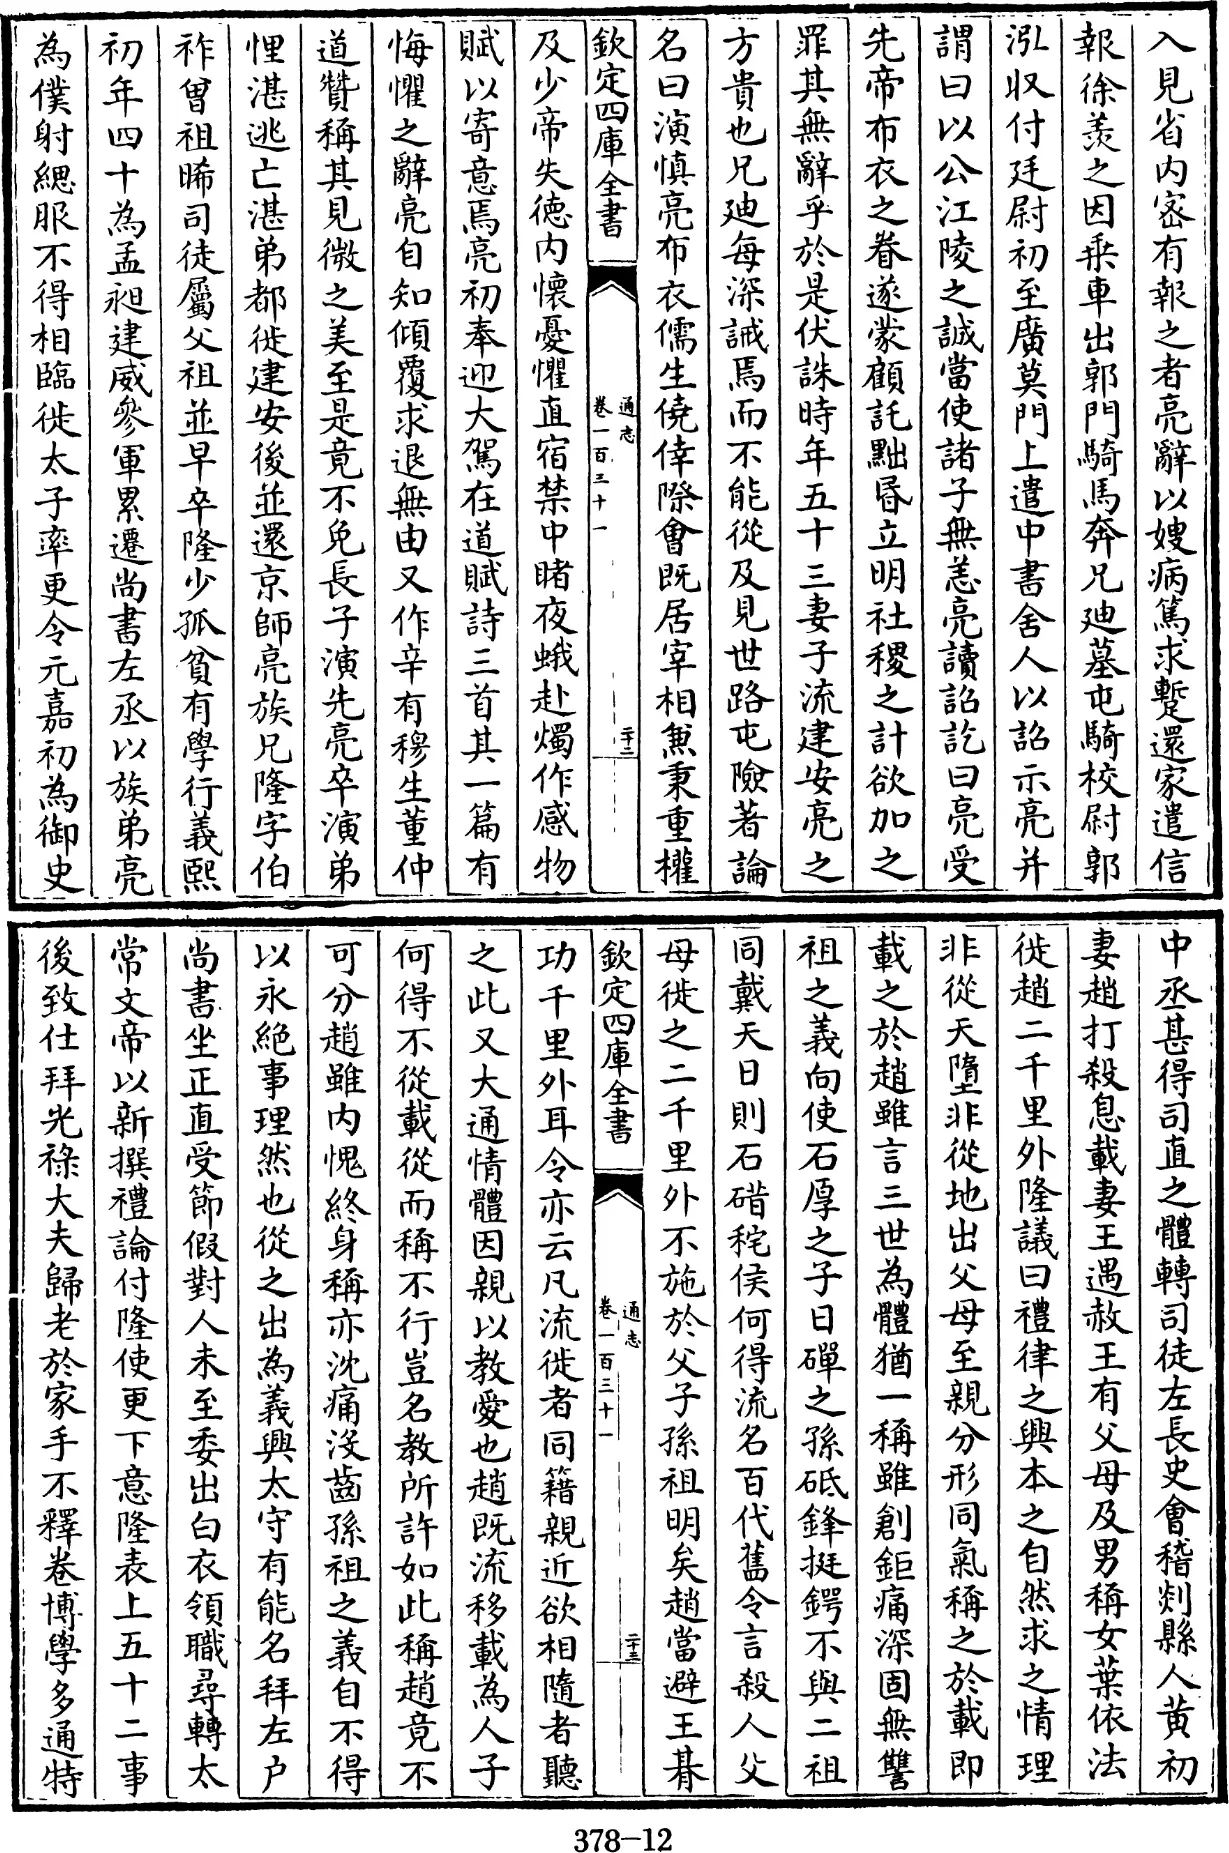 入見省内密有報之者亮辭以嫂病篤求蹔還家遣信
報徐羨之因乗車出郭門騎馬奔兄廸墓屯騎校尉郭
泓収付廷尉初至廣莫門上遣中書舍人以詔示亮并
謂曰以公江陵之誠當使諸子無恙亮讀詔訖曰亮受
先帝布衣之眷遂蒙顧託黜昬立明社稷之計欲加之
罪其無辭乎於是伏誅時年五十三妻子流建安亮之
方貴也兄廸每深誡焉而不能從及見世路屯險著論
名曰演慎亮布衣儒生僥倖際會既居宰相兼秉重權
欽定四庫全書
通志
卷一百三十一
二十二
及少帝失德内懷憂懼直宿禁中睹夜蛾赴燭作感物
賦以寄意焉亮初奉迎大駕在道賦詩三首其一篇有
悔懼之辭亮自知傾覆求退無由又作辛有穆生董仲
道贊稱其見微之美至是竟不免長子演先亮卒演弟
悝湛逃亡湛弟都徙建安後並還京師亮族兄隆字伯
祚曾祖晞司徒屬父祖並早卒隆少孤貧有學行義熙
初年四十為孟昶建威參軍累遷尚書左丞以族弟亮
為僕射緦服不得相臨徙太子率更令元嘉初為御史
中丞甚得司直之體轉司徒左長史會稽剡縣人黄初
妻趙打殺息載妻王遇赦王有父母及男稱女葉依法
徙趙二千里外隆議曰禮律之興本之自然求之情理
非從天墮非從地出父母至親分形同氣稱之於載即
載之於趙雖言三世為體猶一稱雖創鉅痛深固無讐
祖之義向使石厚之子日磾之孫砥鋒挺鍔不與二祖
同戴天日則石碏秺侯何得流名百代舊令言殺人父
母徙之二千里外不施於父子孫祖明矣趙當避王朞
欽定四庫全書
通志
卷一百三十一
二十三
功千里外耳令亦云凡流徙者同籍親近欲相隨者聽
之此又大通情體因親以教愛也趙既流移載為人子
何得不從載從而稱不行豈名教所許如此稱趙竟不
可分趙雖内愧終身稱亦沈痛沒齒孫祖之義自不得
以永絶事理然也從之出為義興太守有能名拜左户
尚書坐正直受節假對人未至委出白衣領職尋轉太
常文帝以新撰禮論付隆使更下意隆表上五十二事
後致仕拜光祿大夫歸老於家手不釋卷博學多通特
378-12